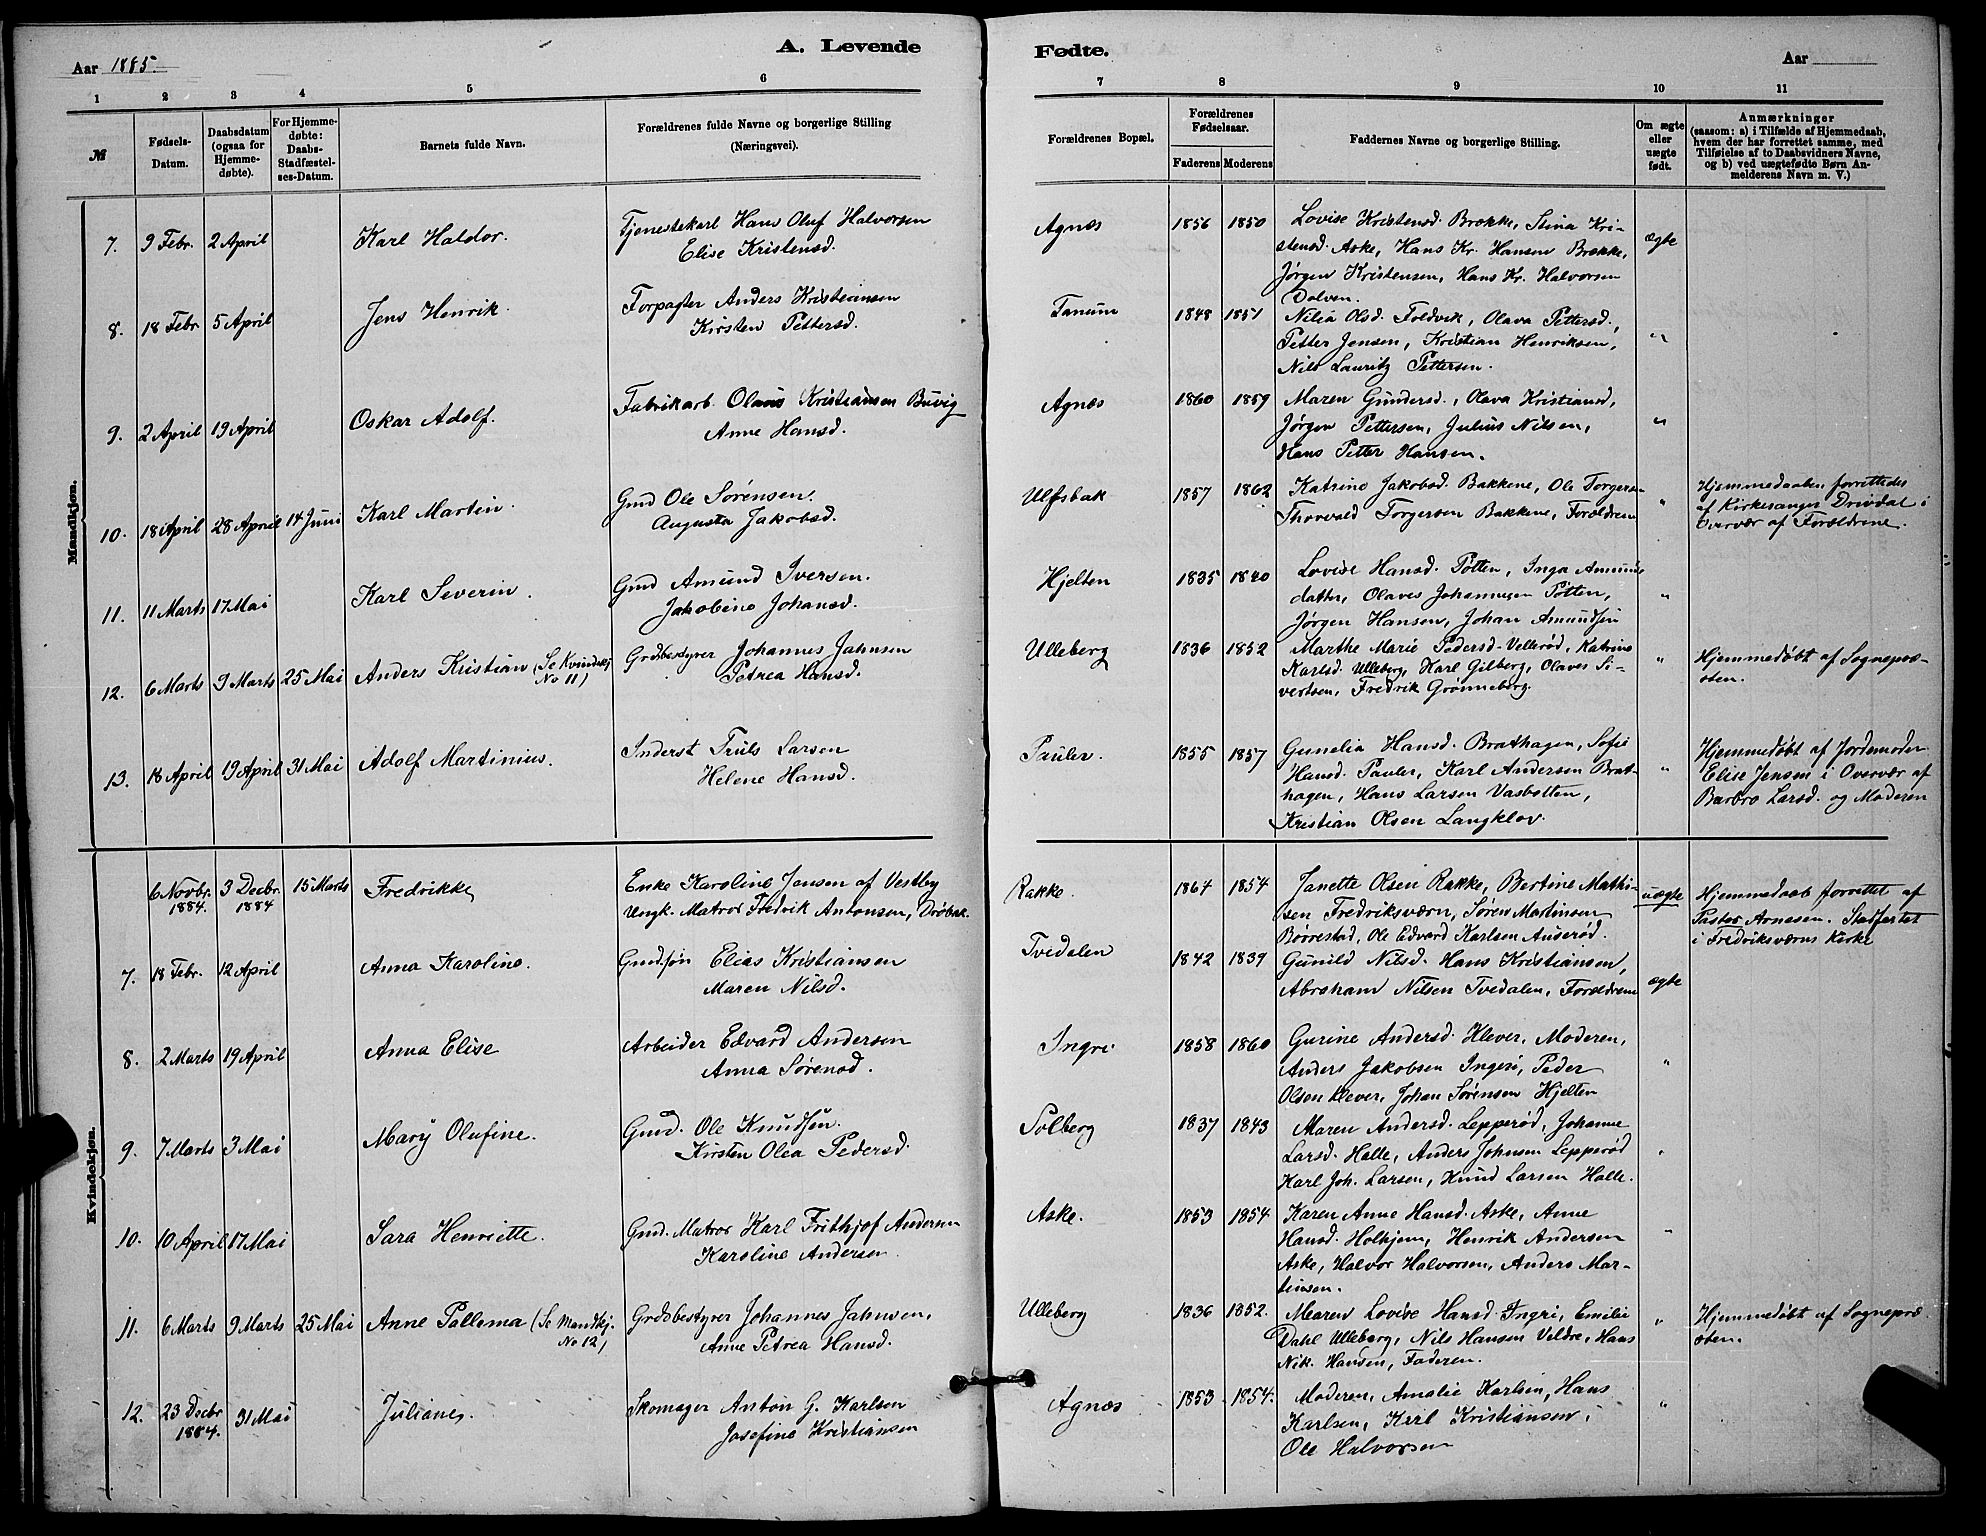 A. Levende
Fødte.
Aar 1885.
Aar
1 2 3 4 5 6 7 8 9 10 11
№
Fødsels-
Datum.
Daabsdatum
(ogsaa for
Hjemme-
døbte).
For Hjemme-
døbte:
Daabs-
Stadfæstel-
ses-Datum.
Barnets fulde Navn.
Forældrenes fulde Navne og borgerlige Stilling
(Næringsvei).
Forældrenes Bopæl.
Forældrenes
Fødselsaar.
Faderens Moderens
Faddernes Navne og borgerlige Stilling.
Om ægte
eller
uægte
født.
Anmærkninger
(saasom: a) i Tilfælde af Hjemmedaab,
hvem der har forrettet samme, med
Tilføielse af to Daabsvidners Navne,
og b) ved uægtefødte Børn An-
melderens Navn m. V.)
Mandkjøn.
7. 9 Febr. 2 April
Karl Haldor.
Tjenestekarl Hans Oluf Halvorsen
Elise Kristensd.
Agnæs
1856 1850
Lovise Kristensd. Brække, Stina Kri-
stensd. Aske, Hans Kr. Hansen Brække,
Jørgen Kristensen, Hans Kr. Halvorsen
Dolven.
ægte
8. 18 Febr. 5 April
Jens Henrik.
Forpagter Anders Kristiansen
Kirsten Pettersd.
Tanum
1848 1851
Nilia Olsd. Foldvik, Olava Pettersd.,
Petter Jensen, Kristian Henriksen,
Nils Lauritz Pettersen.
"
9. 2 April 19 April
Oskar Adolf.
Fabrikarb. Olaus Kristiansen Buvig
Anne Hansd.
Agnæs
1860 1859
Maren Gundersd., Olava Kristiansd.,
Jørgen Pettersen, Julius Nilsen,
Hans Petter Hansen.
"
10. 18 April 28 April 14 Juni
Karl Martin.
Gmd Ole Sørensen.
Augusta Jakobsd.
Ulfsbak
1857 1862
Katrine Jakobsd. Bakkene, Ole Torgersen
Thorvald Torgersen Bakkene, Forældrene
"
Hjemmedaaben forrettedes
af Kirkesanger Drivdal i
Overvær af Forældrene.
11. 11 Marts 17 Mai
Karl Severin.
Gmd Amund Iversen.
Jakobine Johansd.
Hjelten
1835 1840
Lovise Hansd. Pøtten, Inga Amunds
datter, Olaves Johannesen Pøtten,
Jørgen Hansen, Johan Amundsen
"
12. 6 Marts 9 Marts 25 Mai
Anders Kristian (Se Kvindekj.
No 11)
Grdsbestyrer Johannes Jahnsen
Petrea Hansd.
Ulleberg
1836 1852
Marthe Marie Pedersd. Vellerød, Katrine
Karlsd. Ulleberg, Karl Gilberg, Olaves Si-
vertsen, Fredrik Grønneberg.
"
Hjemmedøbt af Sognepræ-
sten.
13. 18 April 19 April 31 Mai
Adolf Martinius.
Inderst Truls Larsen
Helene Hansd.
Pauler.
1855 1857
Gunelia Hansd. Brathagen, Sofie
Hansd. Pauler, Karl Andersen Brat-
hagen, Hans Larsen Vasbotten,
Kristian Olsen Langklov.
"
Hjemmedøbt af Jordemoder
Elise Jensen i Overvær af
Barbro Larsd. og Moderen
Kvindekjøn.
6 Novbr. 3 Decbr 15 Marts
1884. 1884
Fredrikke
Enke Karoline Jensen af Vestby
Ungk. Matros Fredrik Antonsen, Drøbak
Rakke.
1864 1854
Janette Olsen Rakke, Bertine Mathi-
sen Fredriksværn, Søren Martinsen
Børrestad, Ole Edvard Karlsen Auserød.
uægte
Hjemmedaab forrettet af
Pastor Arnesen. Stadfæstet
i Fredriksværns Kirke
7. 18 Febr. 12 April
Anna Karoline.
Gmdsøn Elias Kristiansen
Maren Nilsd.
Tvedalen
1842 1839
Gunild Nilsd. Hans Kristiansen,
Abraham Nilsen Tvedalen, Forældrene
ægte
8. 2 Marts 19 April
Anna Elise
Arbeider Edvard Andersen
Anna Sørensd.
Ingri
1858 1860
Gurine Andersd. Klever, Moderen,
Anders Jakobsen Ingeri, Peder
Olsen Klever, Johan Sørensen Hjelten
"
9. 7 Marts 3 Mai
Mary Olufine.
Gmd. Ole Knudsen.
Kirsten Olea Pedersd.
Solberg
1837 1843
Maren Andersd. Lepperød, Johanne
Larsd. Halle, Anders Johnsen Lepperød
Karl Joh. Larsen, Knud Larsen Halle.
"
10. 10 April 17 Mai
Sara Henriette.
Gmd. Matros Karl Frithjof Andersen
Karoline Andersen.
Aske.
1853 1854
Karen Anne Hansd. Aske, Anne
Hansd. Holhjem, Henrik Andersen
Aske, Halvor Halvorsen, Anders Mar-
tinsen.
"
11. 6 Marts 9 Marts 25 Mai
Anne Pallema (Se Mandkj.
No 12)
Grdsbestyrer Johannes Jahnsen,
Anne Petrea Hansd.
Ulleberg
1836 1852.
Maren Lovise Hansd. Ingri, Emilie
Dahl Ulleberg, Nils Hansen Veldre, Hans
Nik. Hansen, Faderen.
"
Hjemmedøbt af Sognepræ
sten.
12. 23 Decbr 31 Mai
1884.
Juliane.
Skomager Anton G. Karlsen
Josefine Kristiansen
Agnæs
1853 1854.
Moderen, Amalie Karlsen, Hans
Karlsen, Karl Kristiansen,
Ole Halvorsen
"